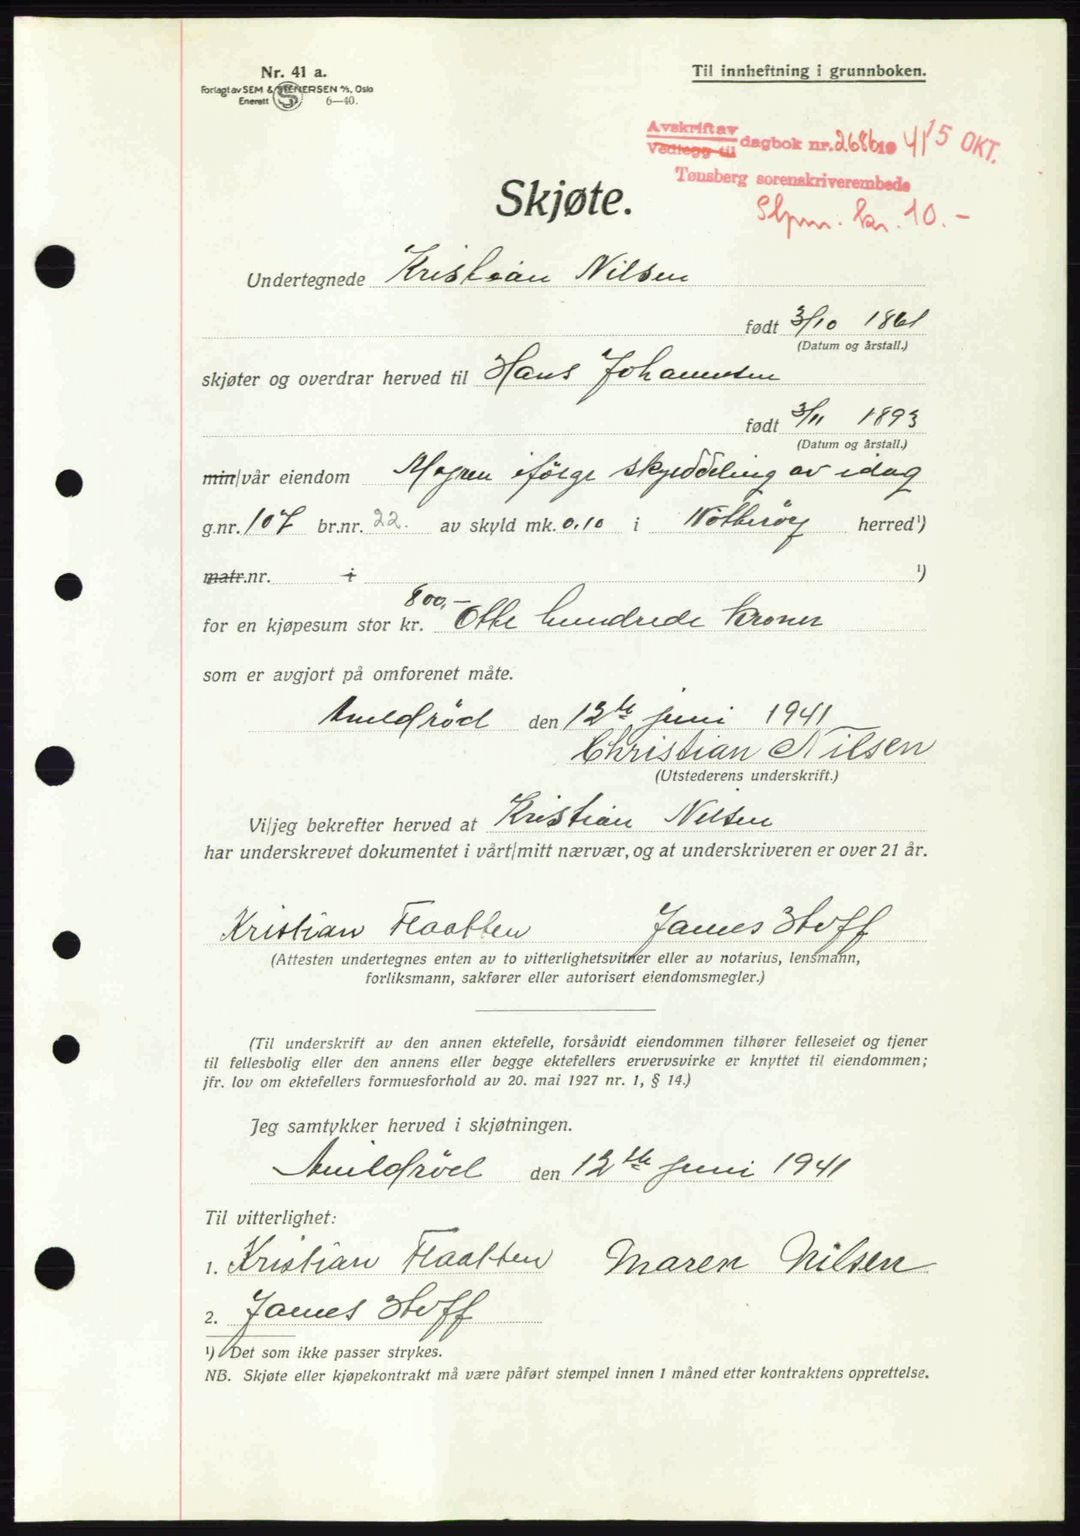 Nr. 41 a.
Forlagt av SEM & STENERSEN A/S, Oslo
Enerett 6—40.
Til innheftning i grunnboken.
Avskrift av
Vedlegg til dagbok nr. 2686 19 41 15 OKT.
Tønsberg sorenskriverembede
Stpm. kr. 10.-
Skjøte.
Undertegnede Kristian Nilsen
født 3/10 1861
(Datum og årstall.)
skjøter og overdrar herved til Hans Johannesen
født 3/11 1893
(Datum og årstall.)
min/vår eiendom ifølge skylddeling av idag
g.nr. 107 br.nr. 22. av skyld mk. 0.10 i Nøtterøy herred¹)
matr.nr. i ¹)
for en kjøpesum stor kr. 800,- Otte hundrede kroner
som er avgjort på omforenet måte.
den 12te juni 1941
Christian Nilsen
(Utstederens underskrift.)
Vi/jeg bekrefter herved at Kristian Nilsen
har underskrevet dokumentet i vårt/mitt nærvær, og at underskriveren er over 21 år.
Kristian Flaatten James Hoff
(Attesten undertegnes enten av to vitterlighetsvitner eller av notarius, lensmann,
forliksmann, sakfører eller autorisert eiendomsmegler.)
(Til underskrift av den annen ektefelle, forsåvidt eiendommen tilhører felleseiet og tjener
til fellesbolig eller den annens eller begge ektefellers ervervsvirke er knyttet til eiendommen;
jfr. lov om ektefellers formuesforhold av 20. mai 1927 nr. 1, § 14.)
Jeg samtykker herved i skjøtningen.
den 12te juni 1941
Til vitterlighet:
1. Kristian Flaatten Maren Nilsen
2. James Hoff
¹) Det som ikke passer strykes.
NB. Skjøte eller kjøpekontrakt må være påført stempel innen 1 måned etter kontraktens opprettelse.